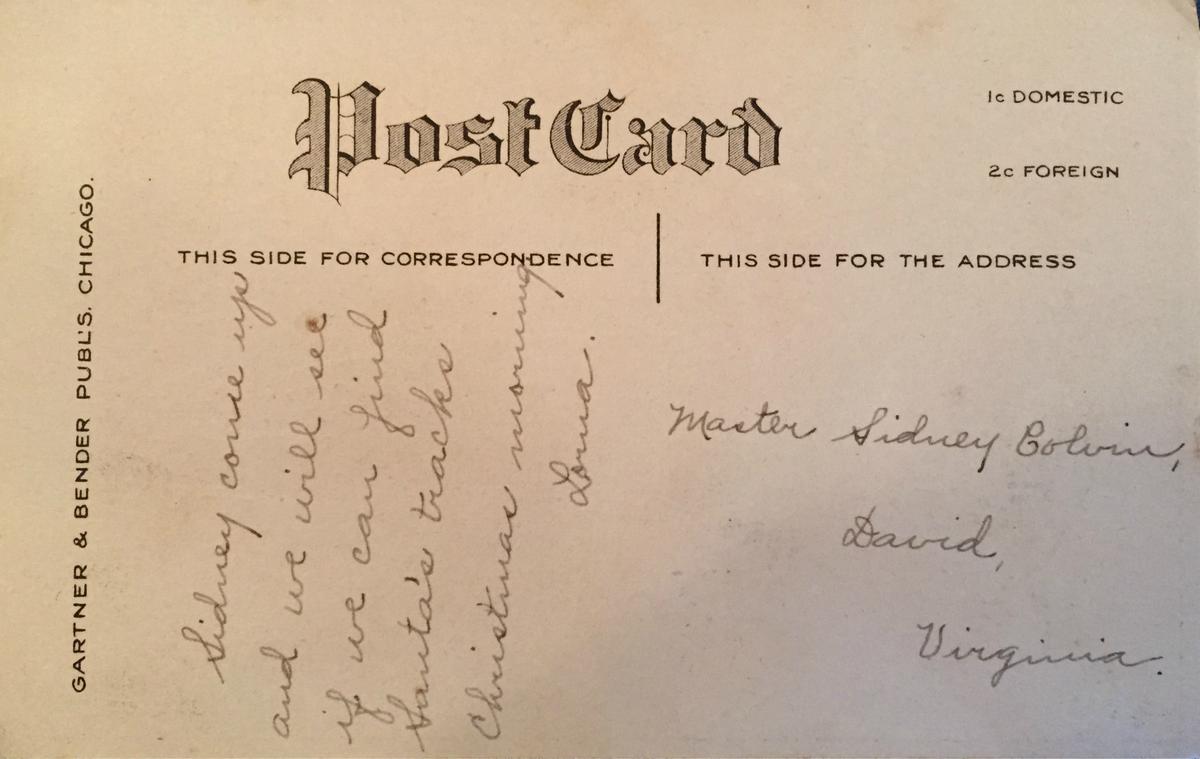 Post Card
1c DOMESTIC
2c FOREIGN
GARTNER & BENDER PUBL'S. CHICAGO.
THIS SIDE FOR CORRESPONDENCE
THIS SIDE FOR THE ADDRESS
Sidney come up
and we will see
if we can find
Santa's tracks
Christmas morning
Lorna.
Master Sidney Colvin,
David,
Virginia.